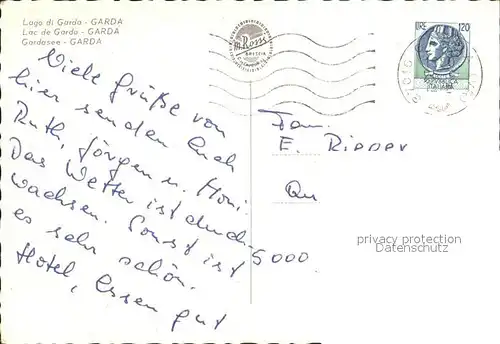 Lago di Garda - GARDA
Lac de Garda - GARDA
Gardasee - GARDA
Rossi
LIRE 120
Viele Grüße von
hier senden Euch
Ruth, Jörgen u. Moni.
Das Wetter ist durch-
wachsen. Sonst ist
es sehr schön.
Hotel, Essen gut
Fam.
E. Rieper
5000
privacy protection
Datenschutz